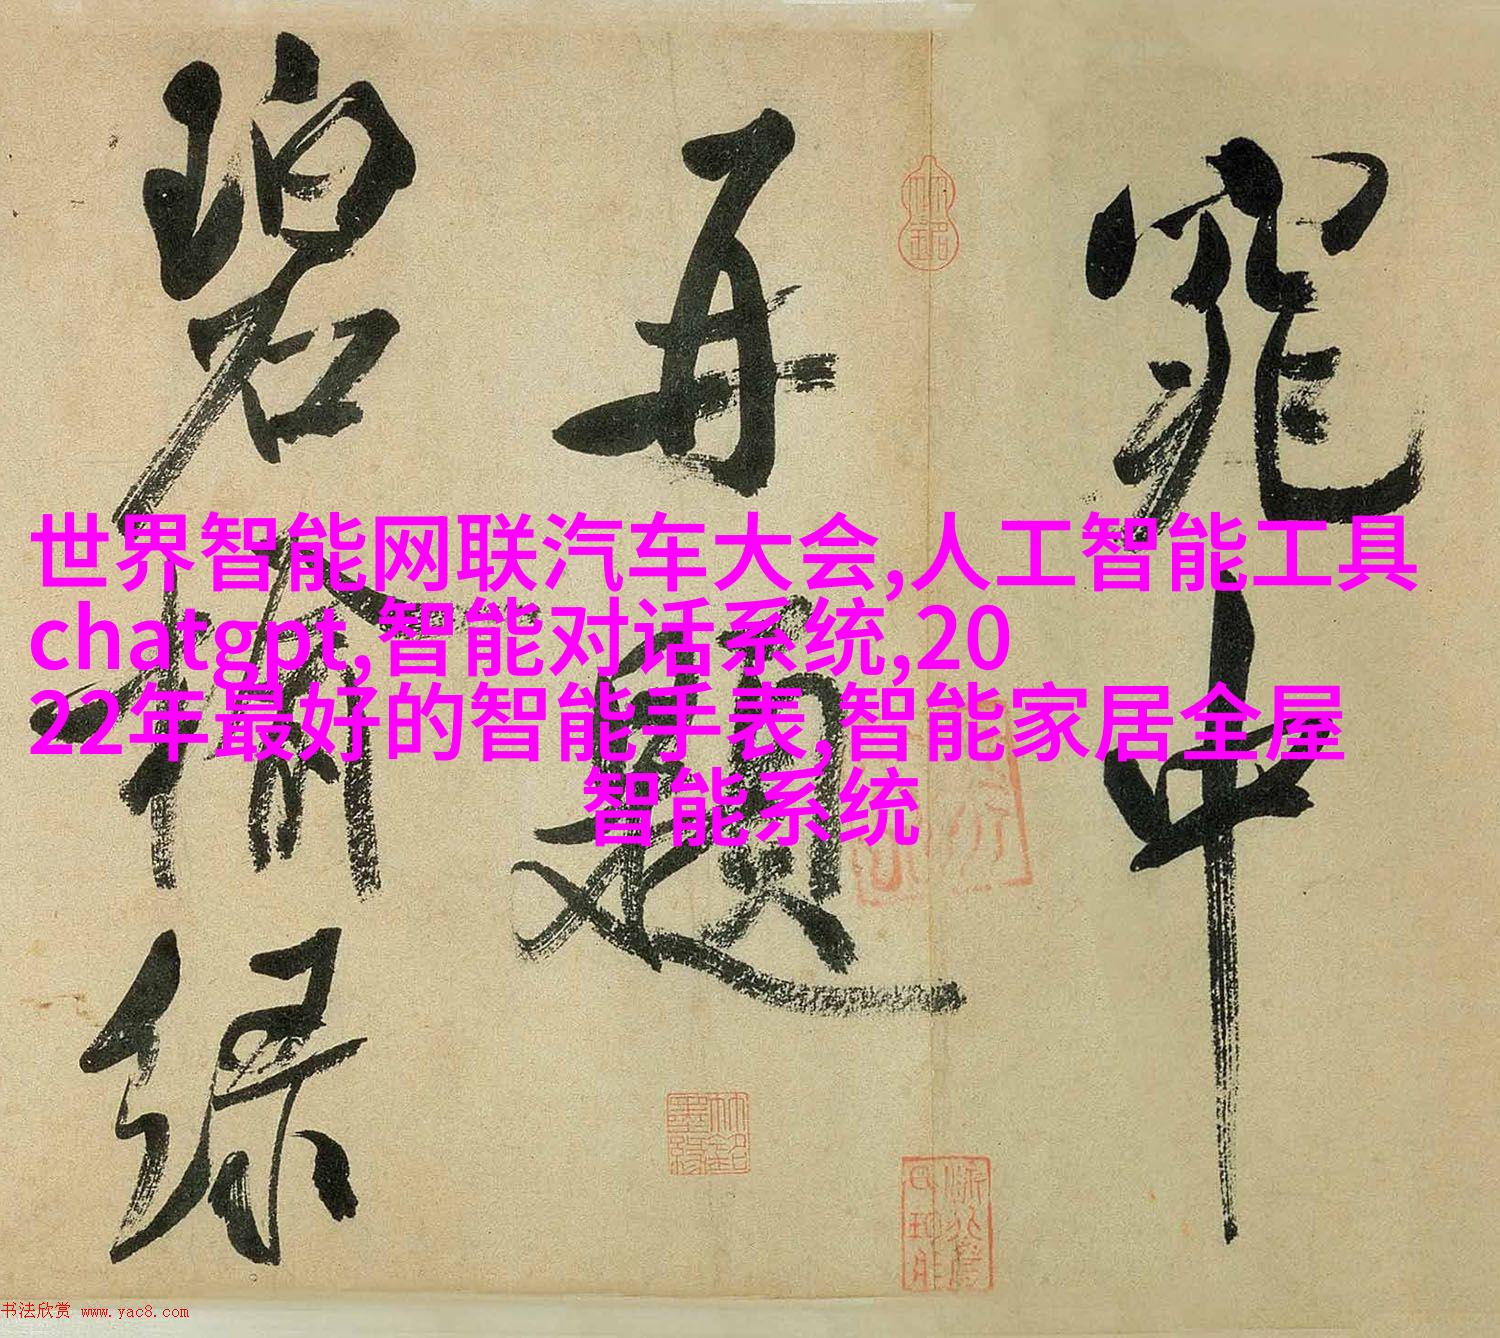 窕中
再題
碧榆綠
世界智能网联汽车大会,人工智能工具
chatgpt,智能对话系统,20
22年最好的智能手表,智能家居全屋
智能系统
书法欣赏 www.yac8.com